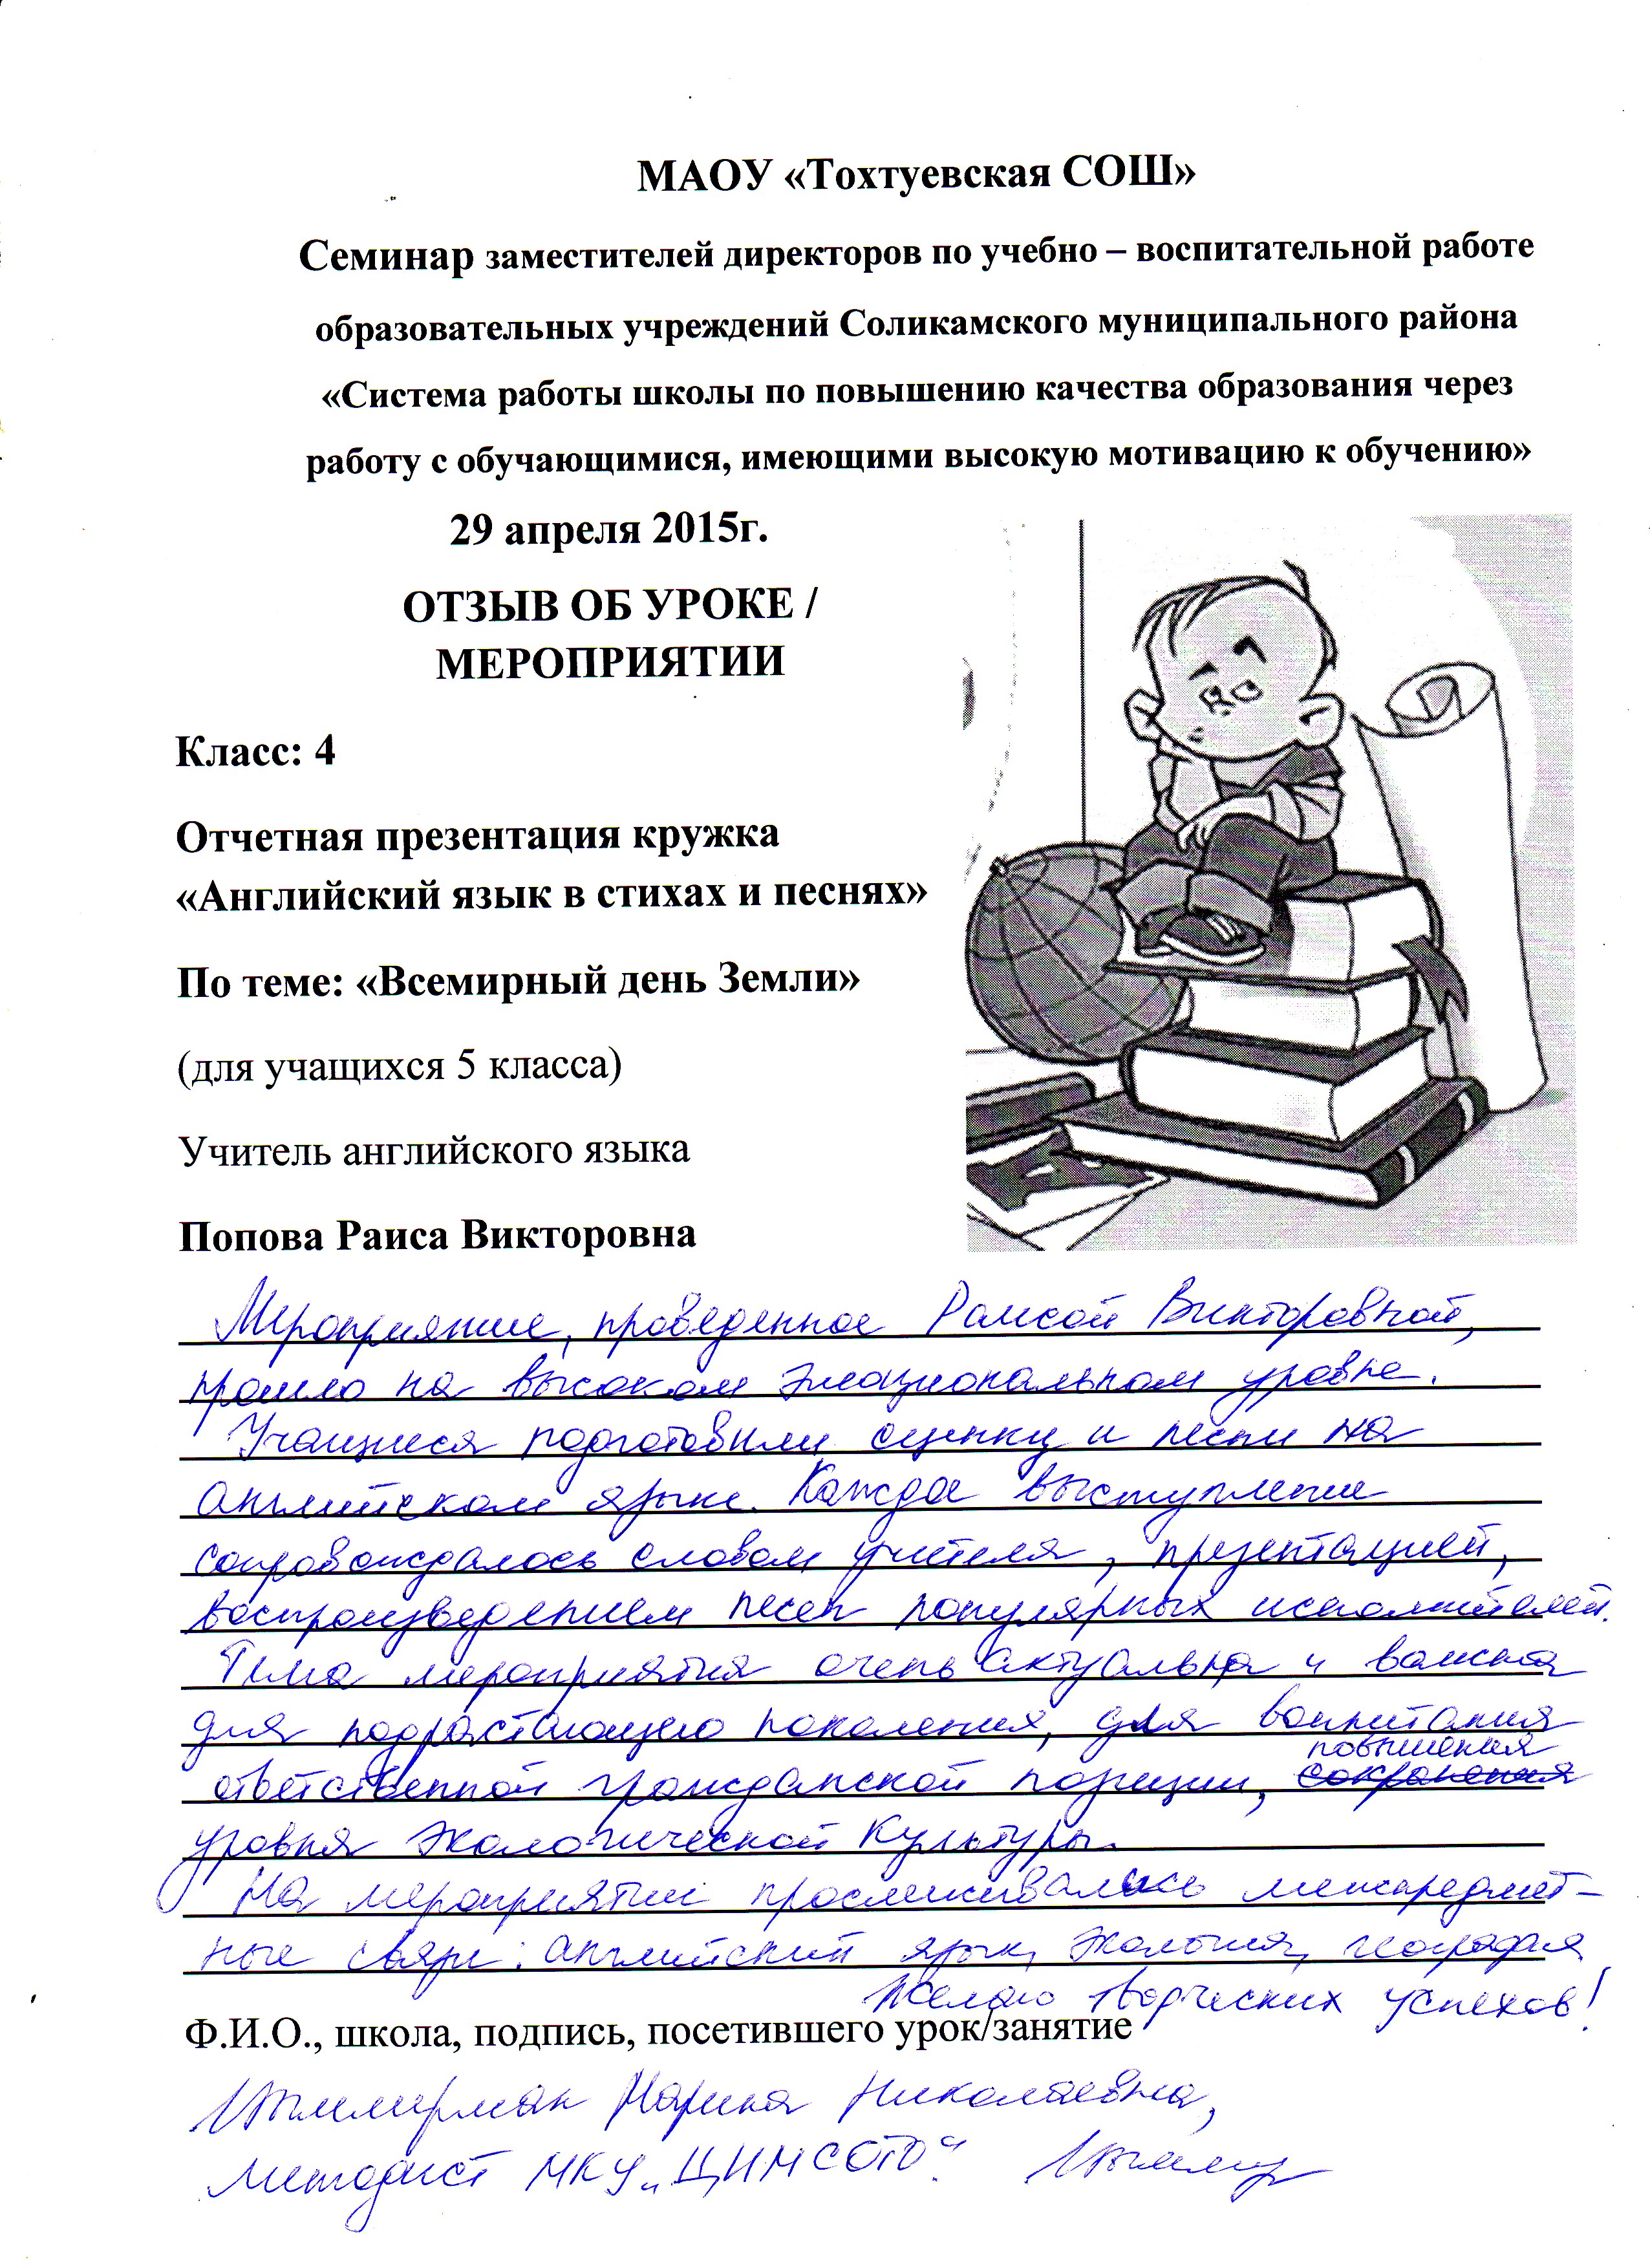 МАОУ «Тохтуевская СОШ»
Семинар заместителей директоров по учебно – воспитательной работе
образовательных учреждений Соликамского муниципального района
«Система работы школы по повышению качества образования через
работу с обучающимися, имеющими высокую мотивацию к обучению»
29 апреля 2015г.
ОТЗЫВ ОБ УРОКЕ /
МЕРОПРИЯТИИ
Класс: 4
Отчетная презентация кружка
«Английский язык в стихах и песнях»
По теме: «Всемирный день Земли»
(для учащихся 5 класса)
Учитель английского языка
Попова Раиса Викторовна
Мероприятие, проведенное Раисой Викторовной,
прошло на высоком эмоциональном уровне.
Учащиеся подготовили сценку и песни на
английском языке. Каждое выступление
сопровождалось словом учителя, презентацией,
воспроизведением песен популярных исполнителей.
Тема мероприятия очень актуальна и важна
для подрастающего поколения, для воспитания
повышения
ответственной гражданской позиции, сохранения
уровня экологической культуры.
На мероприятии прослеживались межпредмет-
ные связи: английский язык, экология, география
Желаю творческих успехов!
Ф.И.О., школа, подпись, посетившего урок/занятие
Марина Николаевна,
методист МКУ „ЦИМСОТО"